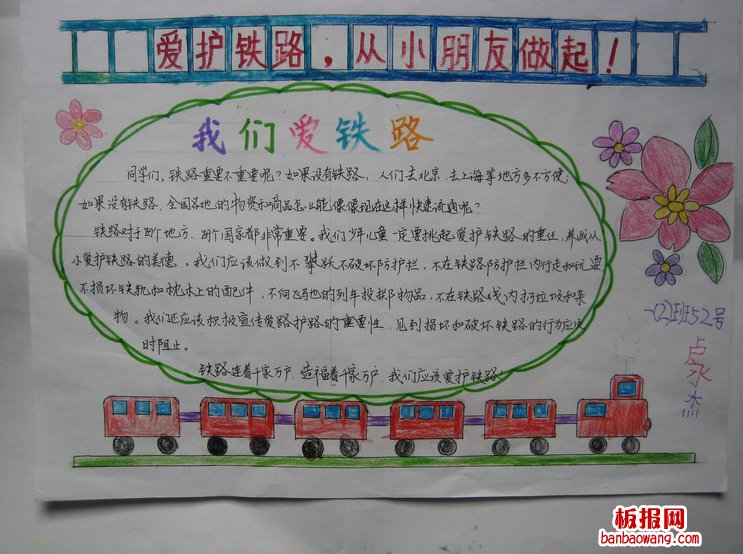 爱护铁路，从小朋友做起！
我们爱铁路
同学们，铁路重要不重要呢？如果没有铁路，人们去北京，去上海等地方多不方便；
如果没有铁路，全国各地的物资和商品怎么能像现在这样快速流通呢？
铁路对于每个地方，每个国家都非常重要。我们少年儿童一定要挑起爱护铁路的重任，养成从
小爱护铁路的美德。我们应该做到不攀跃不破坏防护栏，不在铁路防护栏内行走和玩耍
不损坏铁轨和枕木上的配件，不向飞驰的列车投掷物品，不在铁路线内扔垃圾和杂
物。我们还应该积极宣传爱路护路的重要性，见到损坏和破坏铁路的行为应及
时阻止。
铁路连着千家万户，造福着千家万户，我们应该爱护铁路
一(2)班52号
水杰
板报网
banbaowang.com